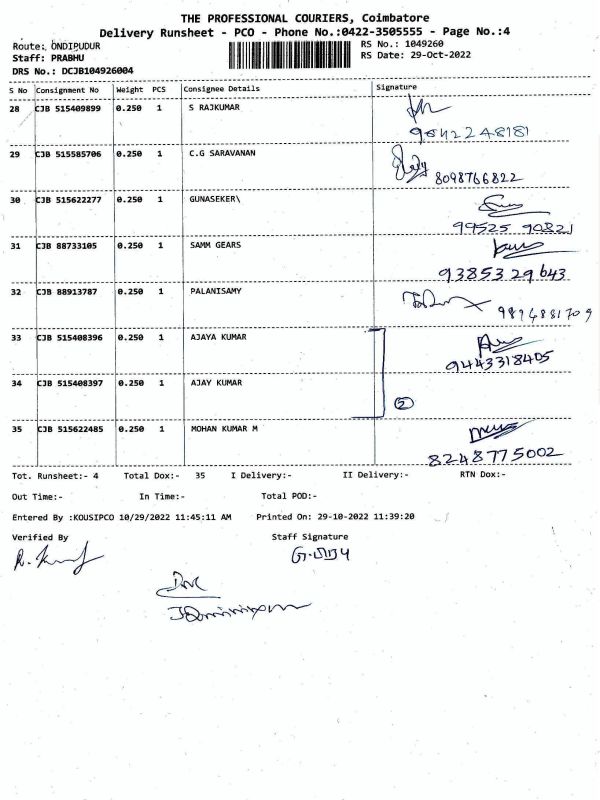 THE PROFESSIONAL COURIERS, Coimbatore
Delivery Runsheet - PCO - Phone No.:0422-3505555 - Page No.:4
Route: ONDIPUDUR
RS No.: 1049260
Staff: PRABHU
RS Date: 29-Oct-2022
DRS No.: DCJB104926004
S No Consignment No Weight PCS Consignee Details Signature
28 CJB 515409899 0.250 1 S RAJKUMAR
9842248181
29 CJB 515585706 0.250 1 C.G SARAVANAN
8098766822
30 CJB 515622277 0.250 1 GUNASEKER\
99525 90821
31 CJB 88733105 0.250 1 SAMM GEARS
9385329643
32 CJB 88913787 0.250 1 PALANISAMY
9894881709
33 CJB 515408396 0.250 1 AJAYA KUMAR
9443318405
34 CJB 515408397 0.250 1 AJAY KUMAR
2
35 CJB 515622485 0.250 1 MOHAN KUMAR M
8248775002
Tot. Runsheet:- 4 Total Dox:- 35 I Delivery:- II Delivery:- RTN Dox:-
Out Time:- In Time:- Total POD:-
Entered By :KOUSIPCO 10/29/2022 11:45:11 AM Printed On: 29-10-2022 11:39:20
Verified By Staff Signature